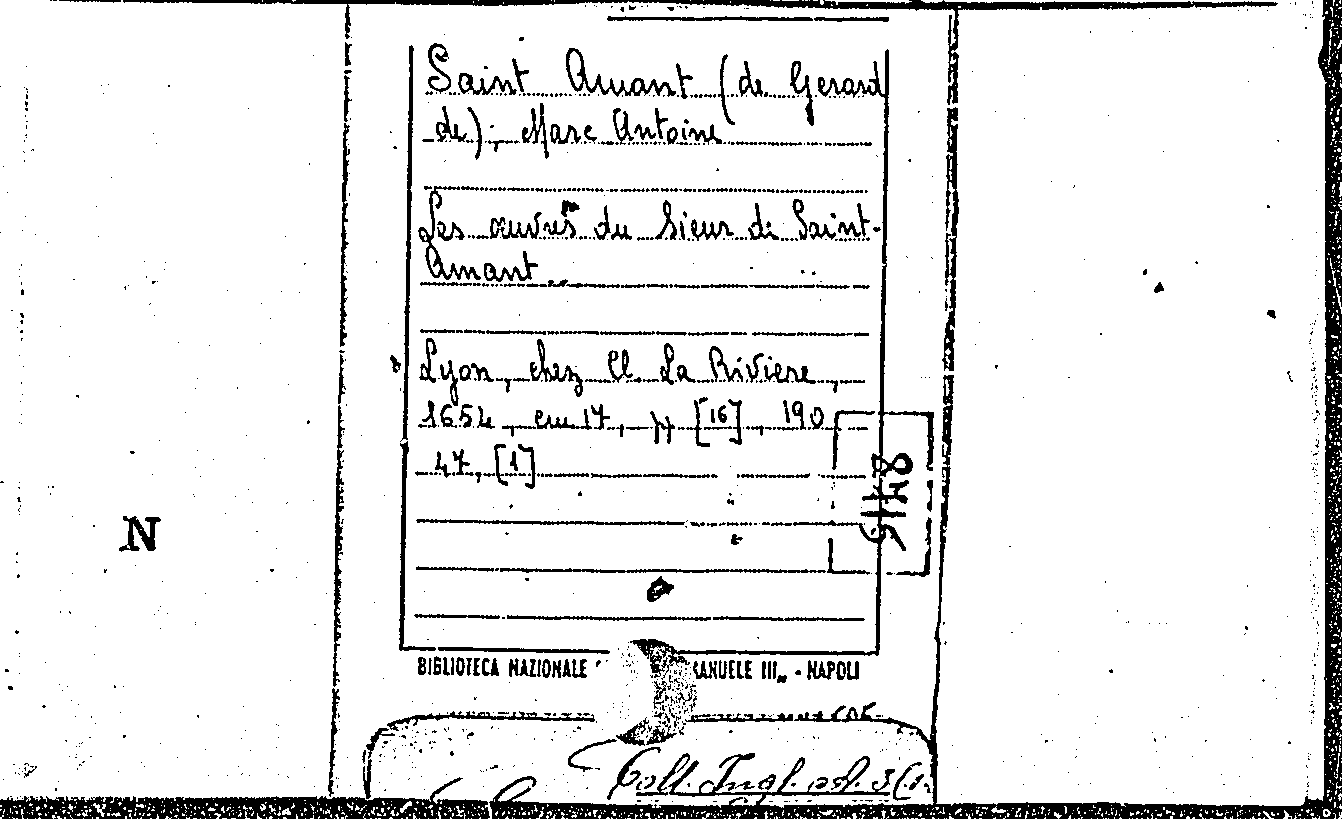 Saint Amant (de Gerard
de); Marc Antoine
Les œuvres du Sieur de Saint-
Amant..
Lyon, chez Cl. La Riviere,
1654, cm 17, pp [16], 190
47, [1]
8415
N
BIBLIOTECA NAZIONALE " ANUELE III„ - NAPOLI
Coll. Ingl.